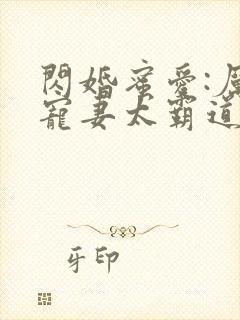 閃婚蜜愛:
寵妻太霸道
牙印